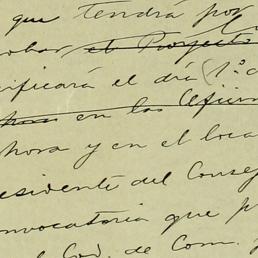 que tendrá por
obar el Proyecto
ificará el día (1.º d
en las Oficin
hora y en el loca
esidente del Consej
nvocatoria que p
el Cod. de Com.